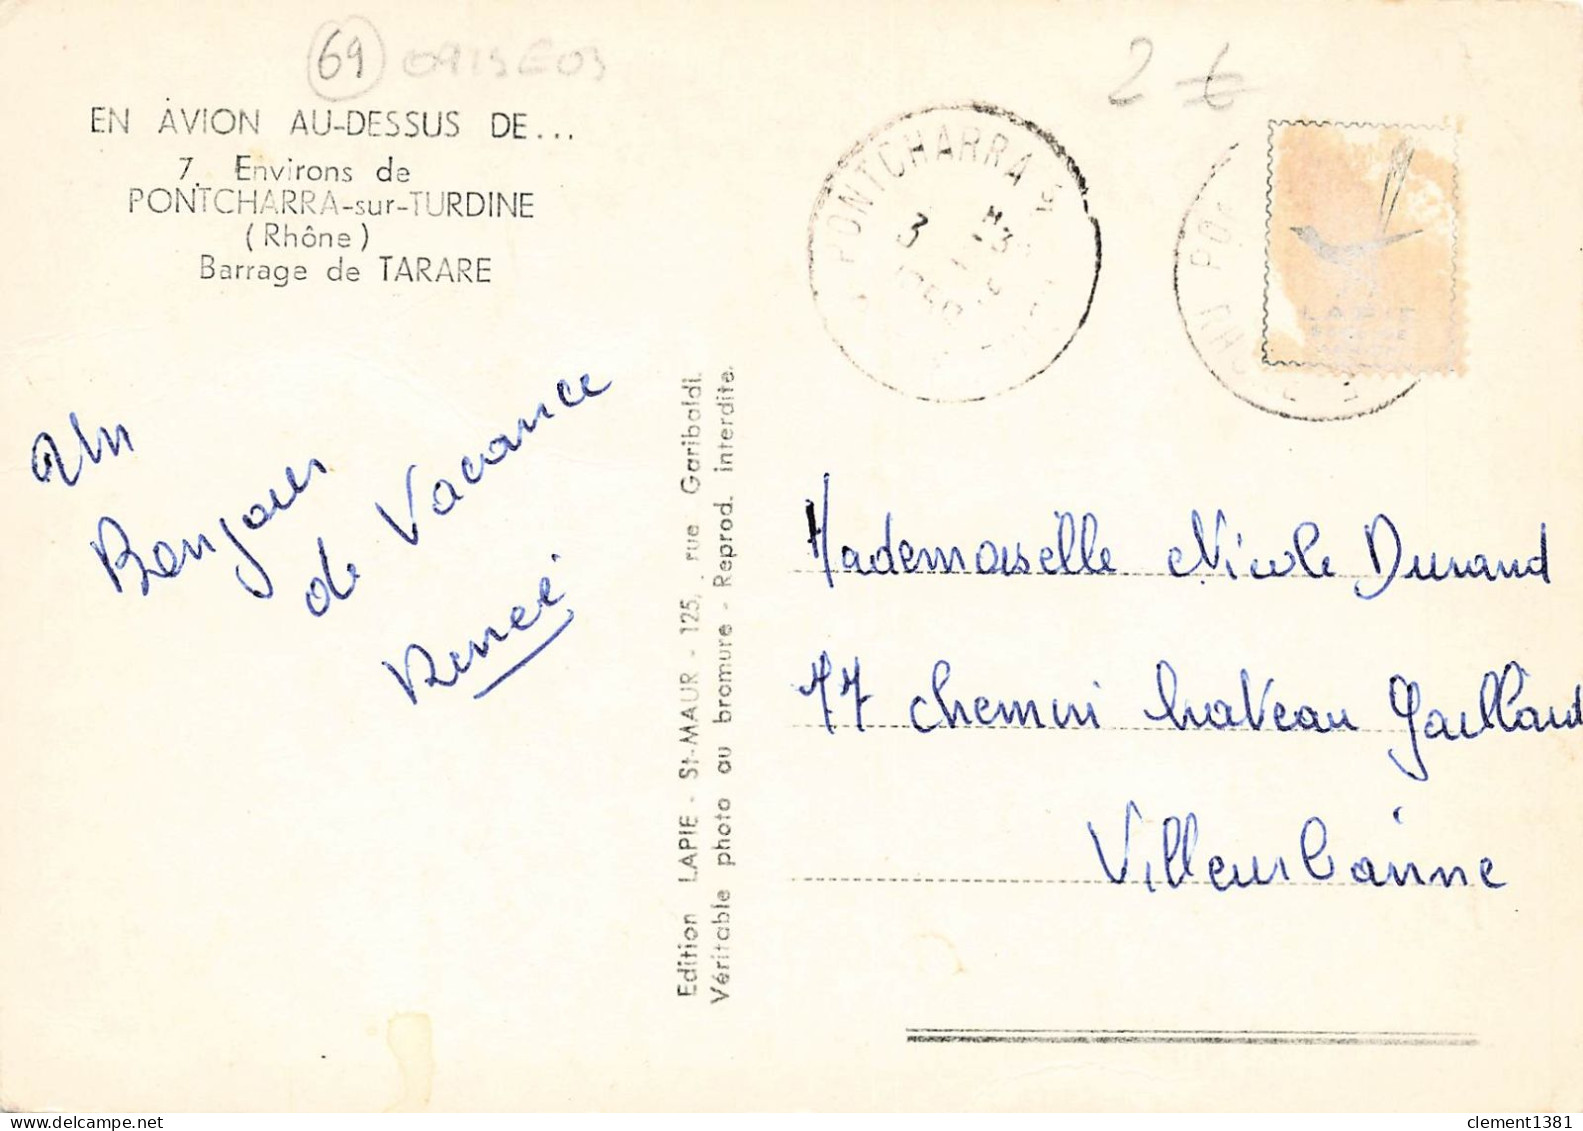 69
2 €
EN AVION AU-DESSUS DE...
7. Environs de
PONTCHARRA-sur-TURDINE
(Rhône)
Barrage de TARARE
PONTCHARRA S
Un
Bonjour
de Vacance
Reneé
Edition LAPIE - St-MAUR - 125, rue Garibaldi.
Véritable photo au bromure - Reprod. interdite.
LAPIE
Mademoiselle Nicole Durand
77 chemin chateau Gaillard
Villeurbanne
clement1381